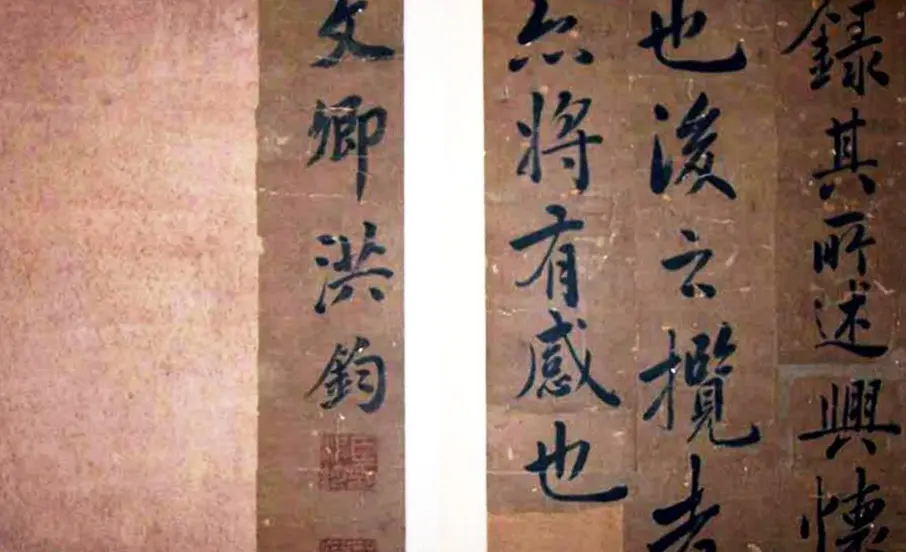 錄其所述興懷
也後云攬者
亦將有感也
文卿洪鈞